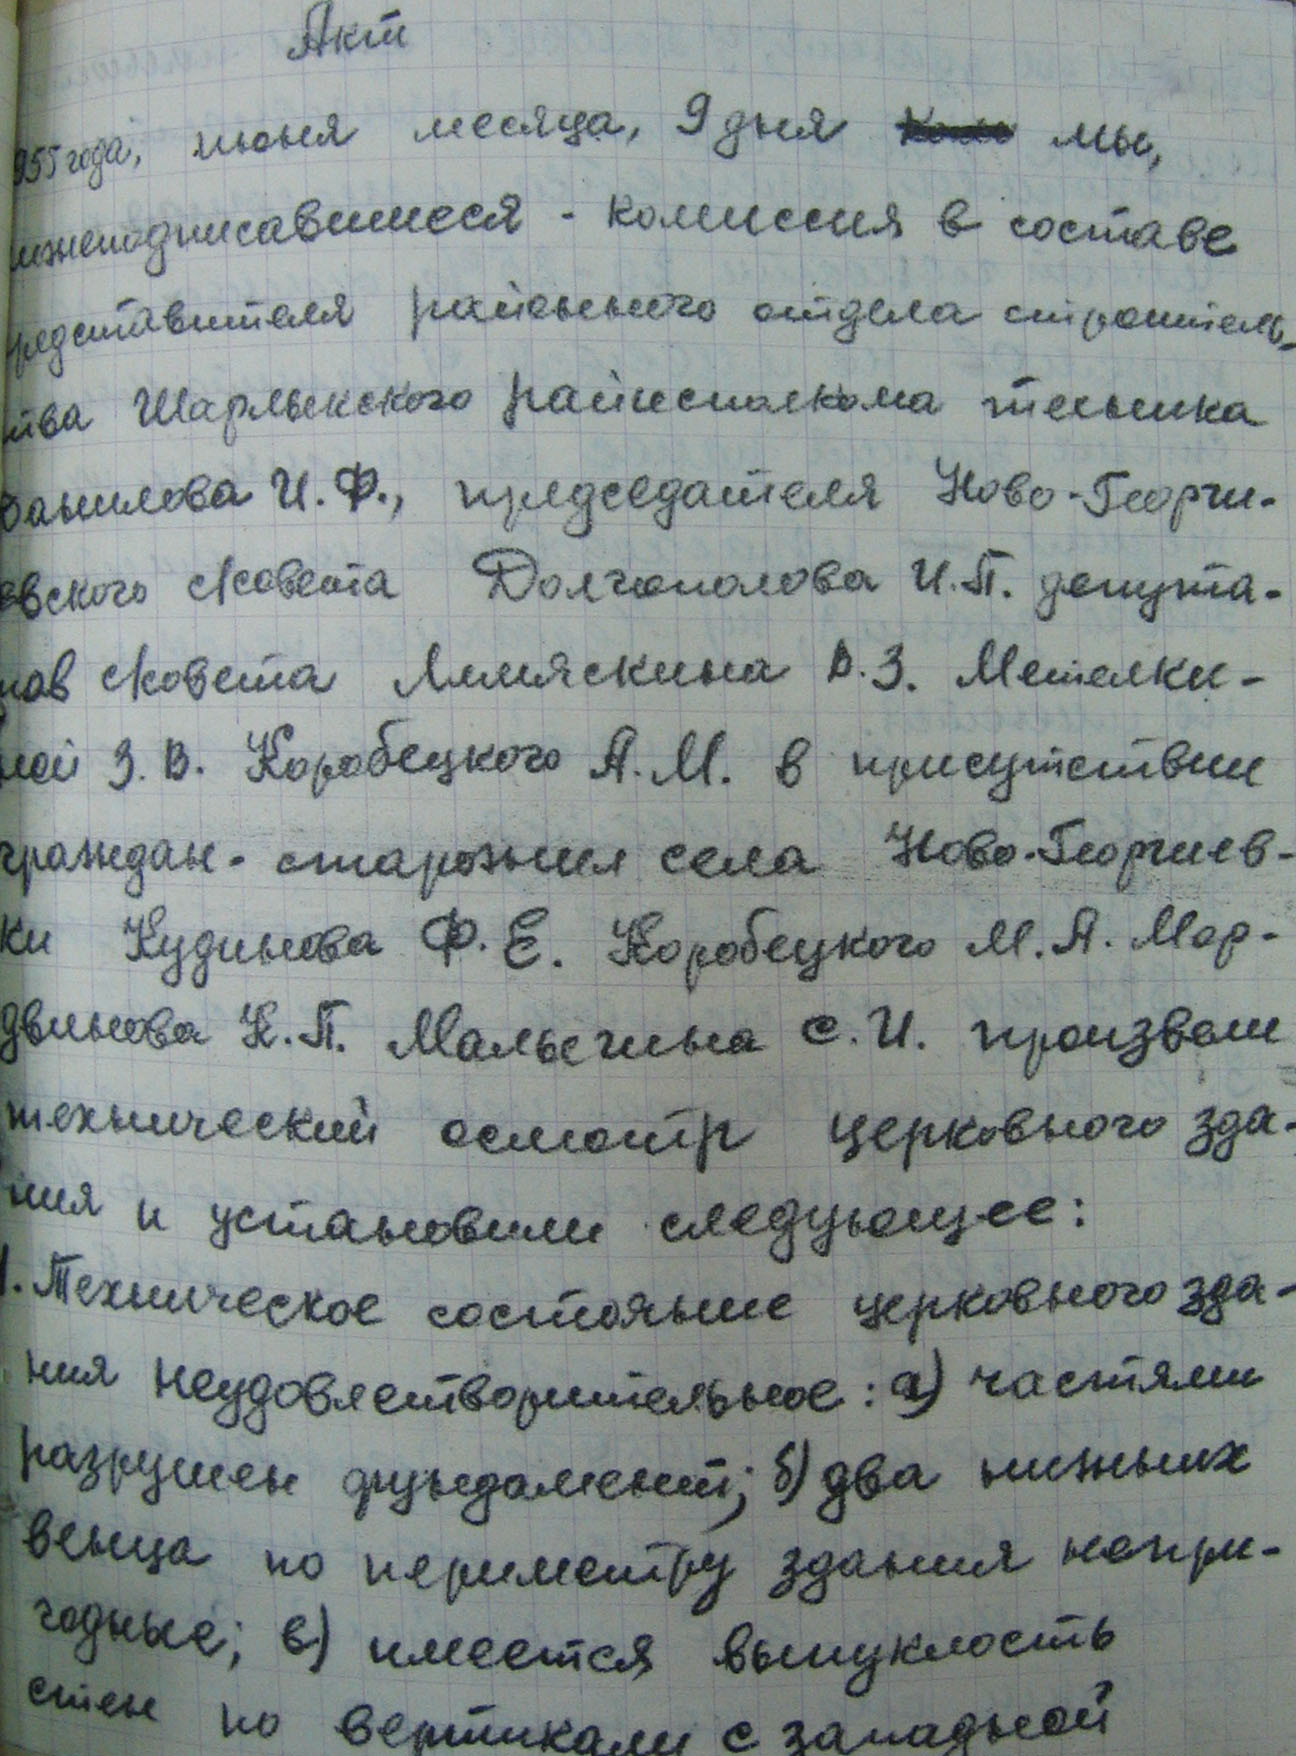 Акт
955 года, июня месяца, 9 дня мы,
иженодписавшиеся - комиссия в составе
редставителя районного отдела строитель-
тва Шарлыкского райисполкома техника
Данилова И. Ф., председателя Ново-Георги-
евского с/совета Долгополова И.П. депута-
тов с/совета Лемяскина В.З. Метелки-
ной З. В. Коробецкого А.М. в присутствии
граждан - старожил села Ново-Георгиев-
ки Кудинова Ф. Е. Коробецкого М.А. Мор-
двинова К.П. Малыгина С.И. произвели
технический осмотр церковного зда-
ния и установили следующее:
1. Техническое состояние церковного зда-
ния неудовлетворительное: а) частями
разрушен фундамент; б) два нижних
венца по периметру здания непри-
годные; в) имеется выпуклость
стен по вертикали с западной